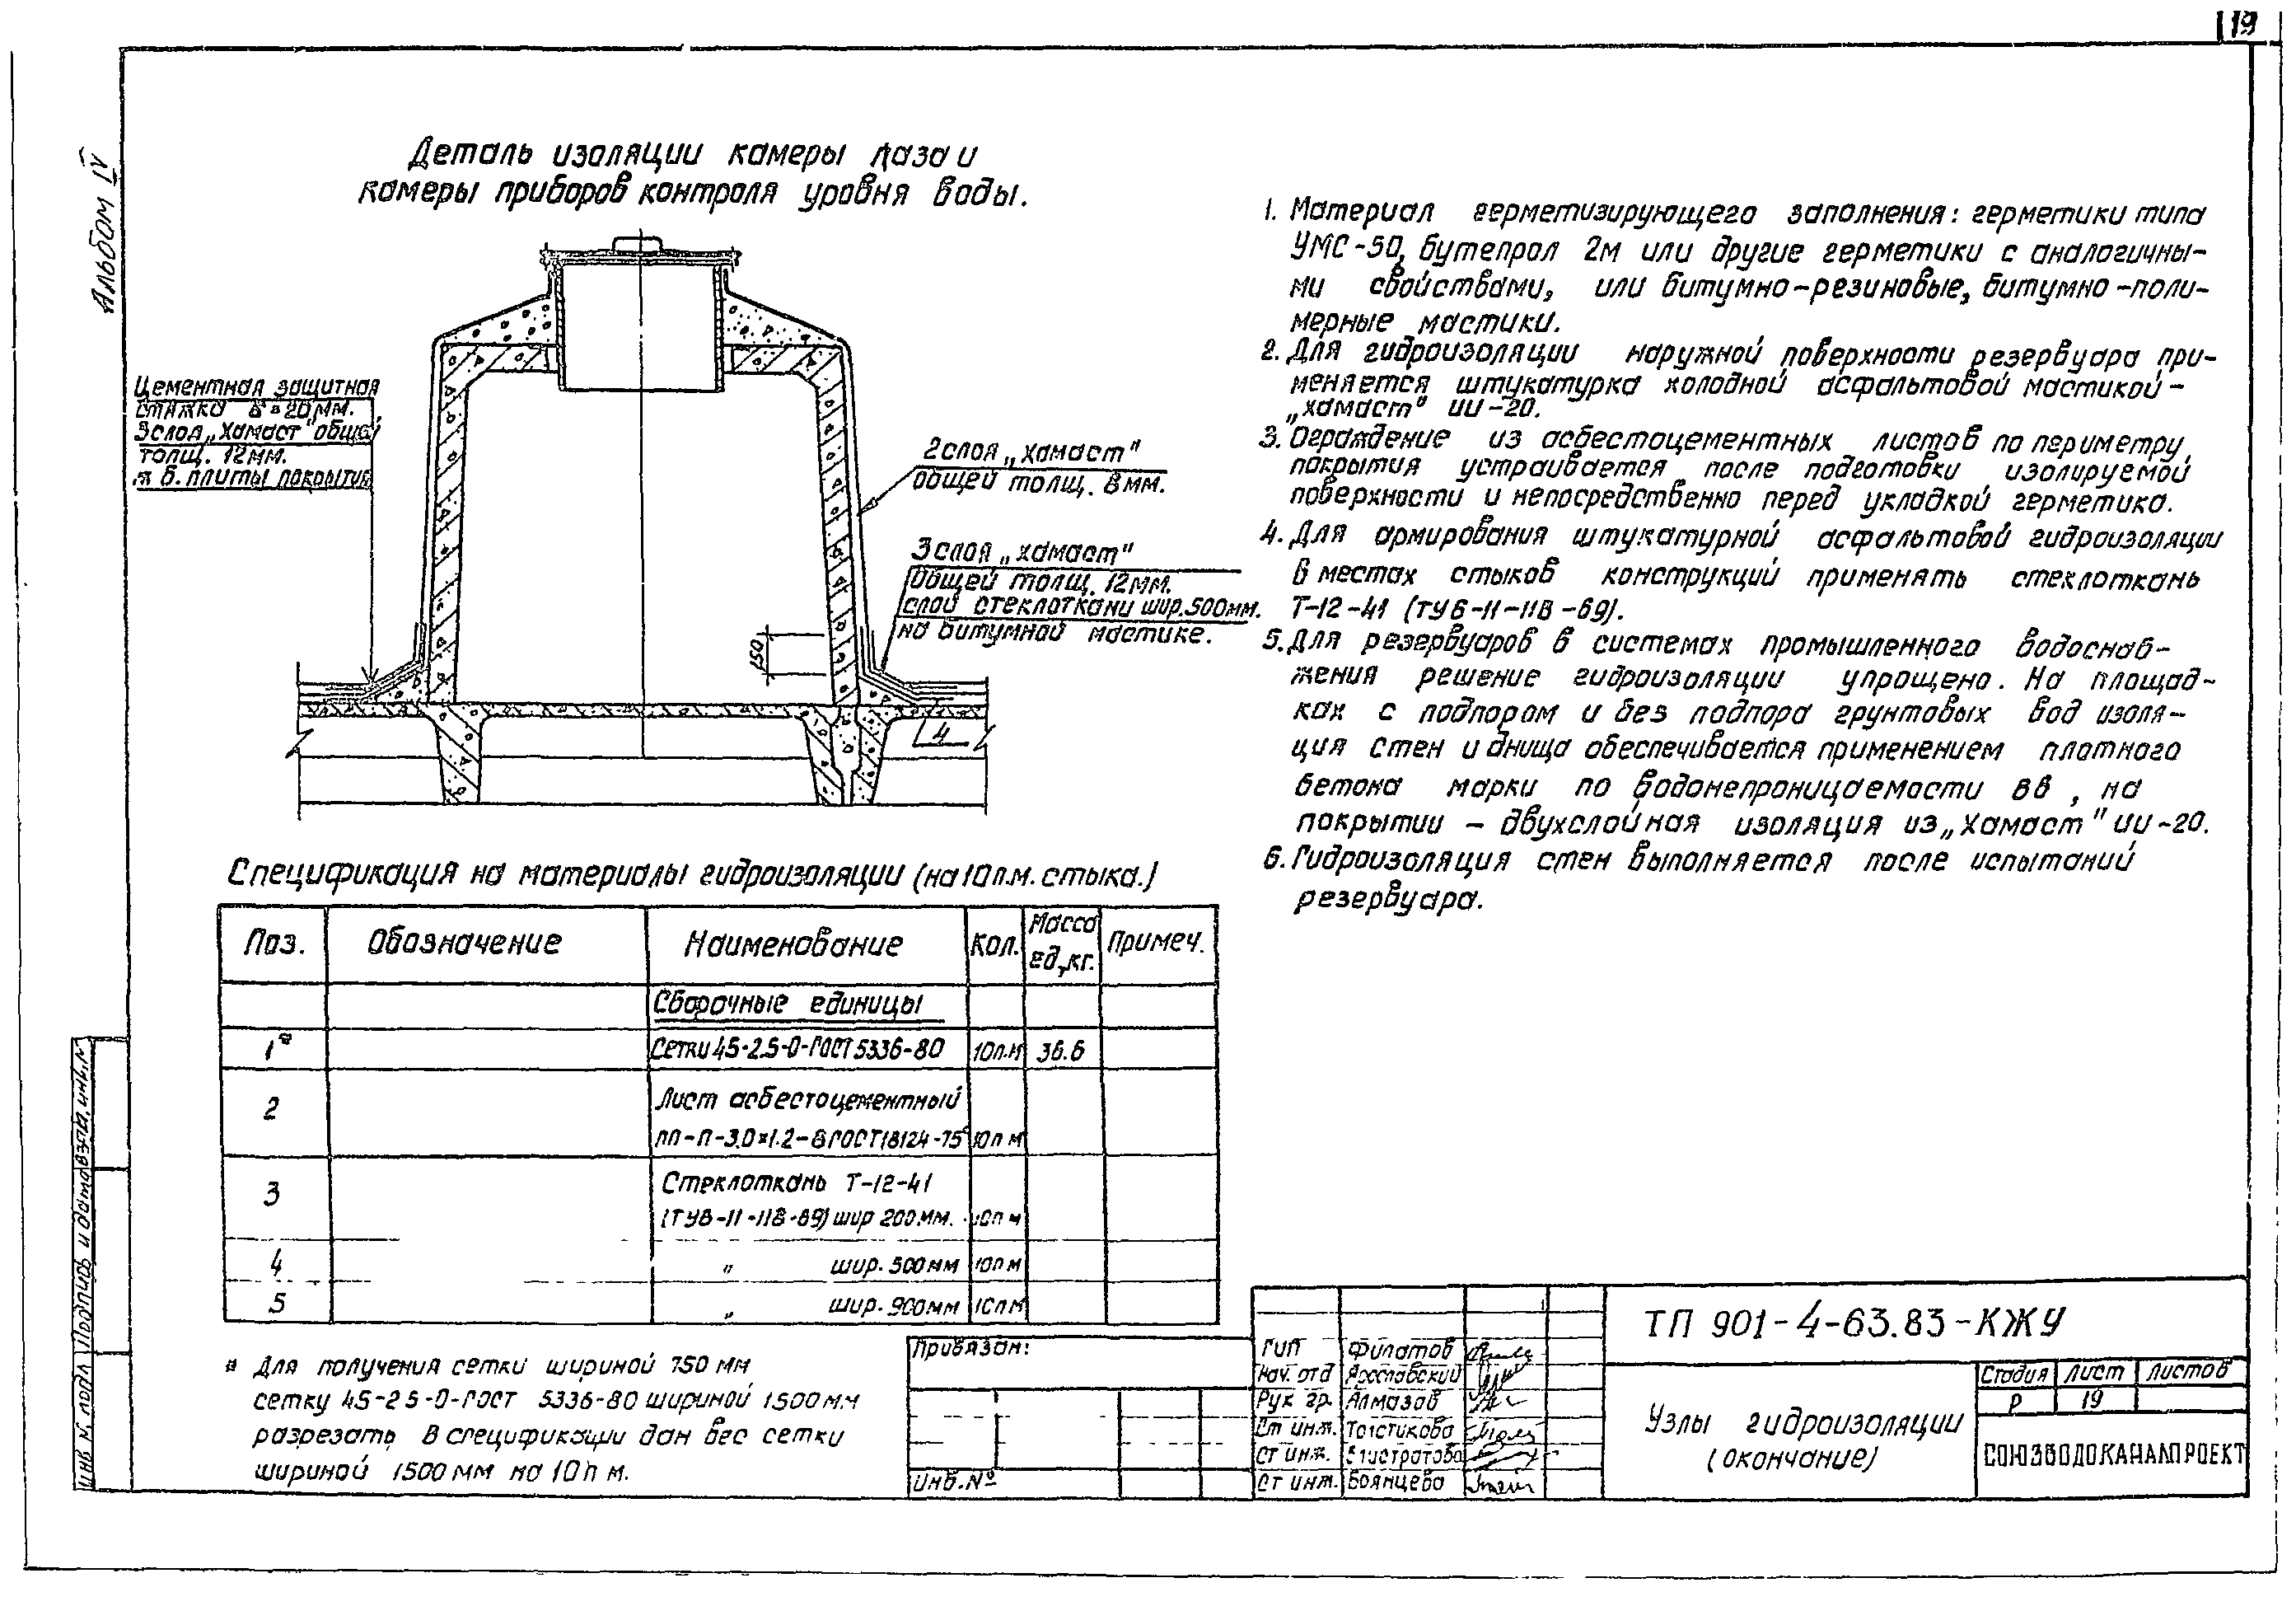 19
Альбом IV
Деталь изоляции камеры лаза и
камеры приборов контроля уровня воды.
Цементная защитная
стяжка δ=20мм.
3слоя „Хамаст" общей
толщ. 12мм.
ж.б. плиты покрытия
2слоя „хамаст"
общей толщ. 8мм.
3слоя „хамаст"
общей толщ. 12мм.
слой стеклоткани шир.500мм.
на битумной мастике.
150
4
1. Материал герметизирующего заполнения: герметики типа
УМС-50, бутепрол 2м или другие герметики с аналогичны-
ми свойствами, или битумно-резиновые, битумно-поли-
мерные мастики.
2. Для гидроизоляции наружной поверхности резервуара при-
меняется штукатурка холодной асфальтовой мастикой-
„хамаст" ИИ-20.
3. Ограждение из асбестоцементных листов по периметру
покрытия устраивается после подготовки изолируемой
поверхности и непосредственно перед укладкой герметика.
4. Для армирования штукатурной асфальтовой гидроизоляции
в местах стыков конструкций применять стеклоткань
Т-12-41 (ТУ6-11-118-69).
5. Для резервуаров в системах промышленного водоснаб-
жения решение гидроизоляции упрощено. На площад-
ках с подпором и без подпора грунтовых вод изоля-
ция стен и днища обеспечивается применением плотного
бетона марки по водонепроницаемости В6, на
покрытии - двухслойная изоляция из „Хамаст" ИИ-20.
6. Гидроизоляция стен выполняется после испытаний
резервуара.
Спецификация на материалы гидроизоляции (на 10п.м. стыка.)
Поз. Обозначение Наименование Кол. Масса ед, кг. Примеч.
Сборочные единицы
1* Сетки 45-2.5-0-ГОСТ 5336-80 10п.м 36.6
2 Лист асбестоцементный
ЛП-П-3.0×1.2-8 ГОСТ18124-75* 10п м
3 Стеклоткань Т-12-41
(ТУ6-11-118-69) шир 200мм. 10п м
4 " шир. 500мм 10п м
5 " шир. 900мм 10п м
* Для получения сетки шириной 750 мм
сетку 45-25-0-ГОСТ 5336-80 шириной 1500мм
разрезать В спецификации дан вес сетки
шириной 1500мм на 10п м.
Привязан:
Инв.№
ГИП Филатов
Нач. отд Ярославский
Рук гр. Алмазов
Ст инж. Толстикова
Ст инж. Елистратова
Ст инж. Боянцева
ТП 901-4-63.83-КЖУ
Узлы гидроизоляции
(окончание)
Стадия Лист Листов
Р 19
СОЮЗВОДОКАНАЛПРОЕКТ
Инв № подл Подпись и дата Взам. инв. №